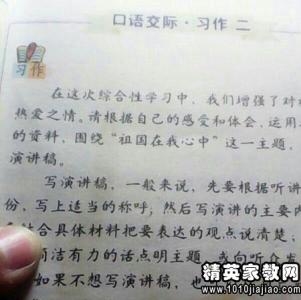 口语交际·习作二
习作
在这次综合性学习中，我们增强了对
热爱之情。请根据自己的感受和体会，运用
的资料，围绕“祖国在我心中”这一主题，
演讲稿。
写演讲稿，一般来说，先要根据听讲
份，写上适当的称呼；然后写演讲的主要内
结合具体材料把要表达的观点说清楚，
简洁有力的话点明主题，或向听众发
如果不想写演讲稿，也
精英家教网
www.1010jiajiao.com